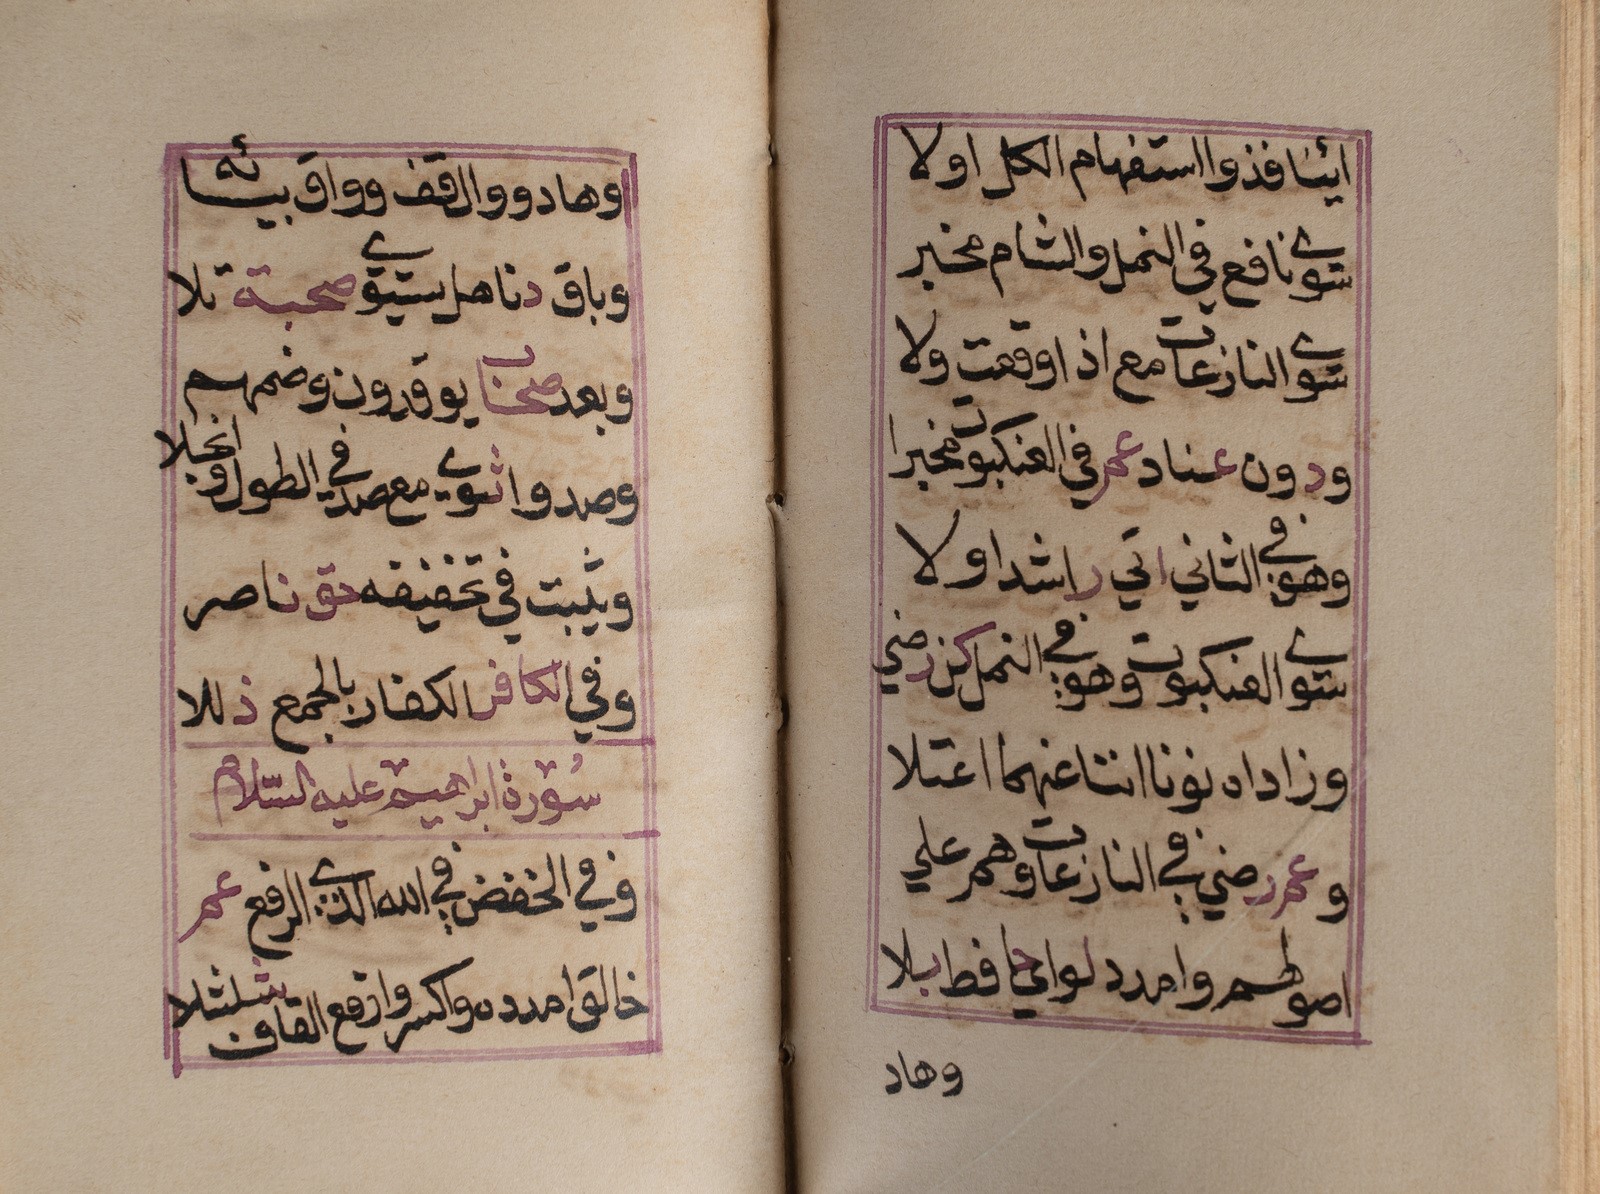 ائنا فذو استفهام الكل اولا
سوي نافع في النمل والشام مخبر
سوي النازعات مع اذا وقعت ولا
ودون عناد عم في العنكبوت مخبرا
وهو في الثاني اتي راشدا ولا
سوي العنكبوت وهو في النمل كن رضي
وزاداه نونا اننا عنهما اعتلا
وعم رضي في النازعات وهم علي
اصولهم وامدد لوا حافظ بلا
وهاد
وهاد ووال قف وواق بيائه
وباق دنا هل يستوي صحبة تلا
وبعد صحاب يوقدون وضمهم
وصدوا ثوي مع صد في الطول وانجلا
ويثبت في تخفيفه حق ناصر
وفي الكافر الكفار بالجمع ذللا
سورة ابراهيم عليه السلام
وفي الخفض في الله الذي الرفع عم
خالق امدده واكسر وارفع القاف شلشلا